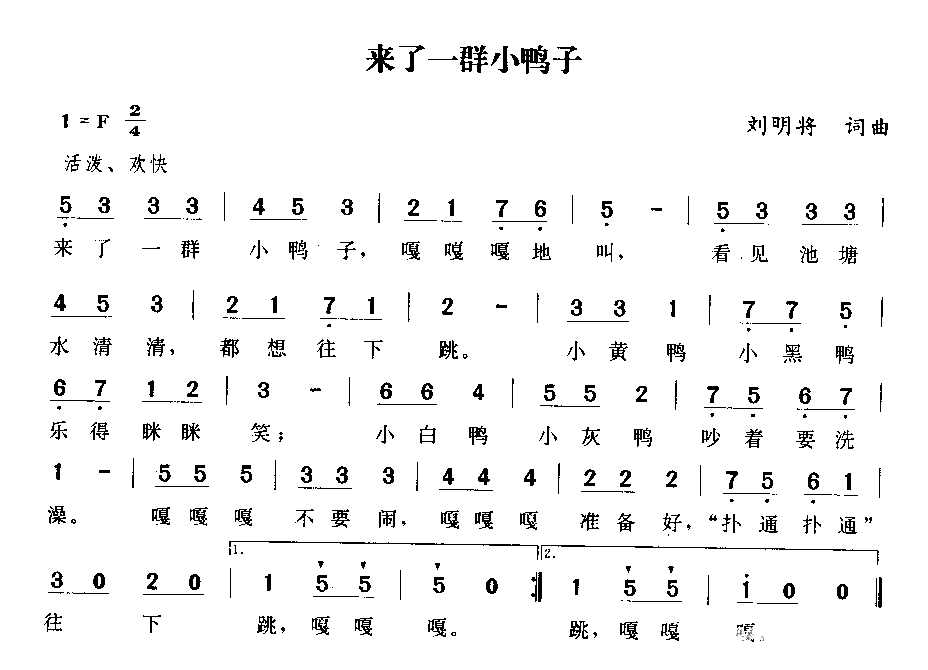 来了一群小鸭子
1 = F 2/4
刘明将 词曲
活泼、欢快
5 3 3 3 | 4 5 3 | 2 1 7 6 | 5 - | 5 3 3 3 |
来了一群 小鸭子， 嘎嘎嘎地 叫， 看见池塘
4 5 3 | 2 1 7 1 | 2 - | 3 3 1 | 7 7 5 |
水清清， 都想往下 跳。 小黄鸭 小黑鸭
6 7 1 2 | 3 - | 6 6 4 | 5 5 2 | 7 5 6 7 |
乐得眯眯 笑； 小白鸭 小灰鸭 吵着要洗
1 - | 5 5 5 | 3 3 3 | 4 4 4 | 2 2 2 | 7 5 6 1 |
澡。 嘎嘎嘎 不要闹， 嘎嘎嘎 准备好， “扑通扑通”
1. 2.
3 0 2 0 | 1 5 5 | 5 0 :‖ 1 5 5 | 1 0 0 ‖
往 下 跳， 嘎嘎 嘎。 跳， 嘎嘎 嘎。